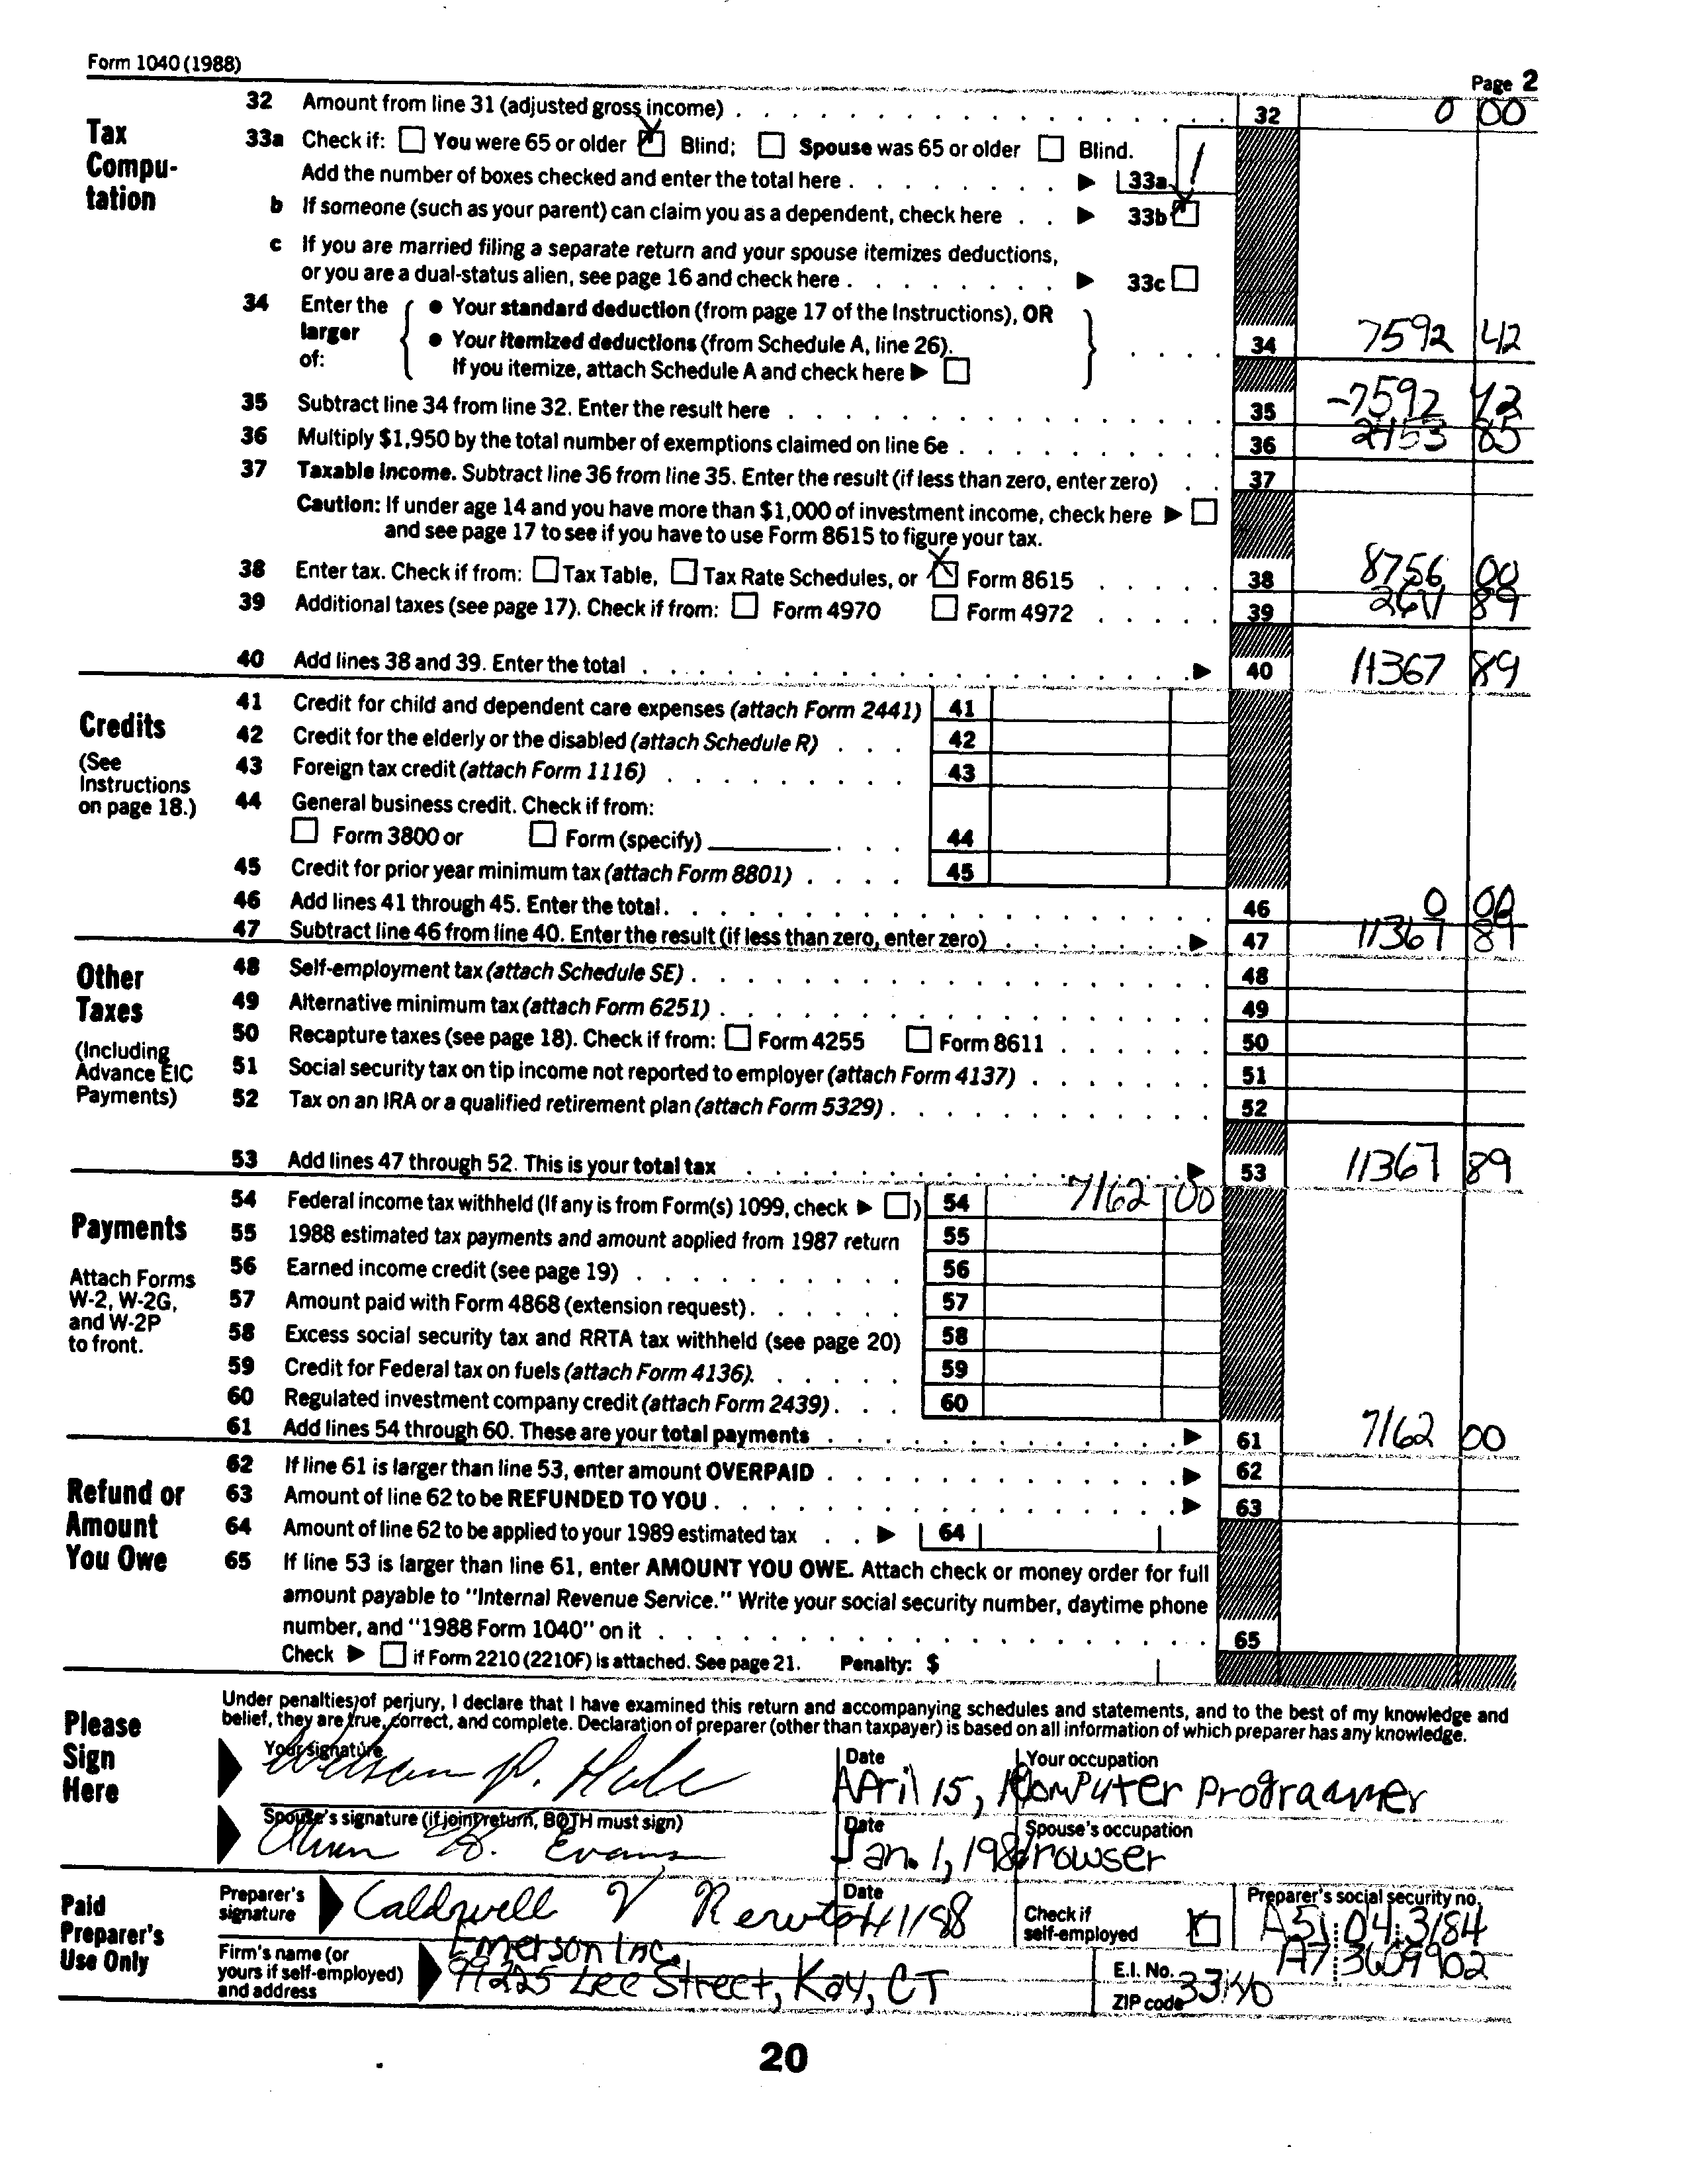 Form 1040 (1988)
Page 2
Tax Compu-tation
32 Amount from line 31 (adjusted gross income) 32 0 00
33a Check if: You were 65 or older Blind; Spouse was 65 or older Blind.
Add the number of boxes checked and enter the total here 33a 1
b If someone (such as your parent) can claim you as a dependent, check here 33b
c If you are married filing a separate return and your spouse itemizes deductions,
or you are a dual-status alien, see page 16 and check here 33c
34 Enter the larger of:
• Your standard deduction (from page 17 of the Instructions), OR
• Your itemized deductions (from Schedule A, line 26).
If you itemize, attach Schedule A and check here
34 7592 42
35 Subtract line 34 from line 32. Enter the result here 35 -7592 42
36 Multiply $1,950 by the total number of exemptions claimed on line 6e 36 2453 85
37 Taxable Income. Subtract line 36 from line 35. Enter the result (if less than zero, enter zero) 37
Caution: If under age 14 and you have more than $1,000 of investment income, check here
and see page 17 to see if you have to use Form 8615 to figure your tax.
38 Enter tax. Check if from: Tax Table, Tax Rate Schedules, or Form 8615 38 8756 00
39 Additional taxes (see page 17). Check if from: Form 4970 Form 4972 39 2611 89
40 Add lines 38 and 39. Enter the total 40 11367 89
Credits
(See Instructions on page 18.)
41 Credit for child and dependent care expenses (attach Form 2441) 41
42 Credit for the elderly or the disabled (attach Schedule R) 42
43 Foreign tax credit (attach Form 1116) 43
44 General business credit. Check if from:
Form 3800 or Form (specify) 44
45 Credit for prior year minimum tax (attach Form 8801) 45
46 Add lines 41 through 45. Enter the total. 46 0 00
47 Subtract line 46 from line 40. Enter the result (if less than zero, enter zero) 47 11367 89
Other Taxes
(Including Advance EIC Payments)
48 Self-employment tax (attach Schedule SE) 48
49 Alternative minimum tax (attach Form 6251) 49
50 Recapture taxes (see page 18). Check if from: Form 4255 Form 8611 50
51 Social security tax on tip income not reported to employer (attach Form 4137) 51
52 Tax on an IRA or a qualified retirement plan (attach Form 5329) 52
53 Add lines 47 through 52. This is your total tax 53 11367 89
Payments
Attach Forms W-2, W-2G, and W-2P to front.
54 Federal income tax withheld (If any is from Form(s) 1099, check ) 54 7162 00
55 1988 estimated tax payments and amount applied from 1987 return 55
56 Earned income credit (see page 19) 56
57 Amount paid with Form 4868 (extension request) 57
58 Excess social security tax and RRTA tax withheld (see page 20) 58
59 Credit for Federal tax on fuels (attach Form 4136). 59
60 Regulated investment company credit (attach Form 2439) 60
61 Add lines 54 through 60. These are your total payments 61 7162 00
Refund or Amount You Owe
62 If line 61 is larger than line 53, enter amount OVERPAID 62
63 Amount of line 62 to be REFUNDED TO YOU 63
64 Amount of line 62 to be applied to your 1989 estimated tax 64
65 If line 53 is larger than line 61, enter AMOUNT YOU OWE. Attach check or money order for full
amount payable to "Internal Revenue Service." Write your social security number, daytime phone
number, and "1988 Form 1040" on it 65
Check if Form 2210 (2210F) is attached. See page 21. Penalty: $
Please Sign Here
Under penalties of perjury, I declare that I have examined this return and accompanying schedules and statements, and to the best of my knowledge and
belief, they are true, correct, and complete. Declaration of preparer (other than taxpayer) is based on all information of which preparer has any knowledge.
Your signature P. Hale Date April 15, Your occupation Computer Prograamer
Spouse's signature (if joint return, BOTH must sign) Evans Date Jan. 1, Spouse's occupation
Paid Preparer's Use Only
Preparer's signature Caldwell V Newton Date Check if self-employed Preparer's social security no. A51 04 3184
Firm's name (or yours if self-employed) and address Emerson Inc. E.I. No. A7 3609902
Lee Street, Kay, CT ZIP code
20